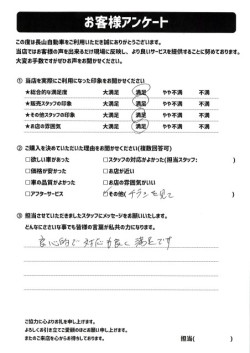 お客様アンケート
この度は長山自動車をご利用いただき誠にありがとうございます。
当店ではお客様の声を出来るだけ現場に反映し、より良いサービスを提供することに努めております。
大変お手数ですがぜひお声をお聞かせください。
① 当店を実際にご利用になった印象をお聞かせください
★総合的な満足度 大満足 満足 やや不満 不満
★販売スタッフの印象 大満足 満足 やや不満 不満
★その他スタッフの印象 大満足 満足 やや不満 不満
★お店の雰囲気 大満足 満足 やや不満 不満
② ご購入を決めていただいた理由をお聞かせください(複数回答可)
□欲しい車があった □スタッフの対応がよかった(担当スタッフ: )
□価格が安かった □お店が近い
□車の品質がよかった □お店の雰囲気がいい
□アフターサービス □その他( チラシを見て )
③ 担当させていただきましたスタッフにメッセージをお願いいたします。
どんなにささいな事でも皆様の言葉が私共の力になります。
良心的で対応も良く満足です
ご協力に心よりお礼を申し上げます。
よろしくお引き立てご愛顧のほどお願い申し上げます。
またのご来店を心からお待ちしております。 担当( )